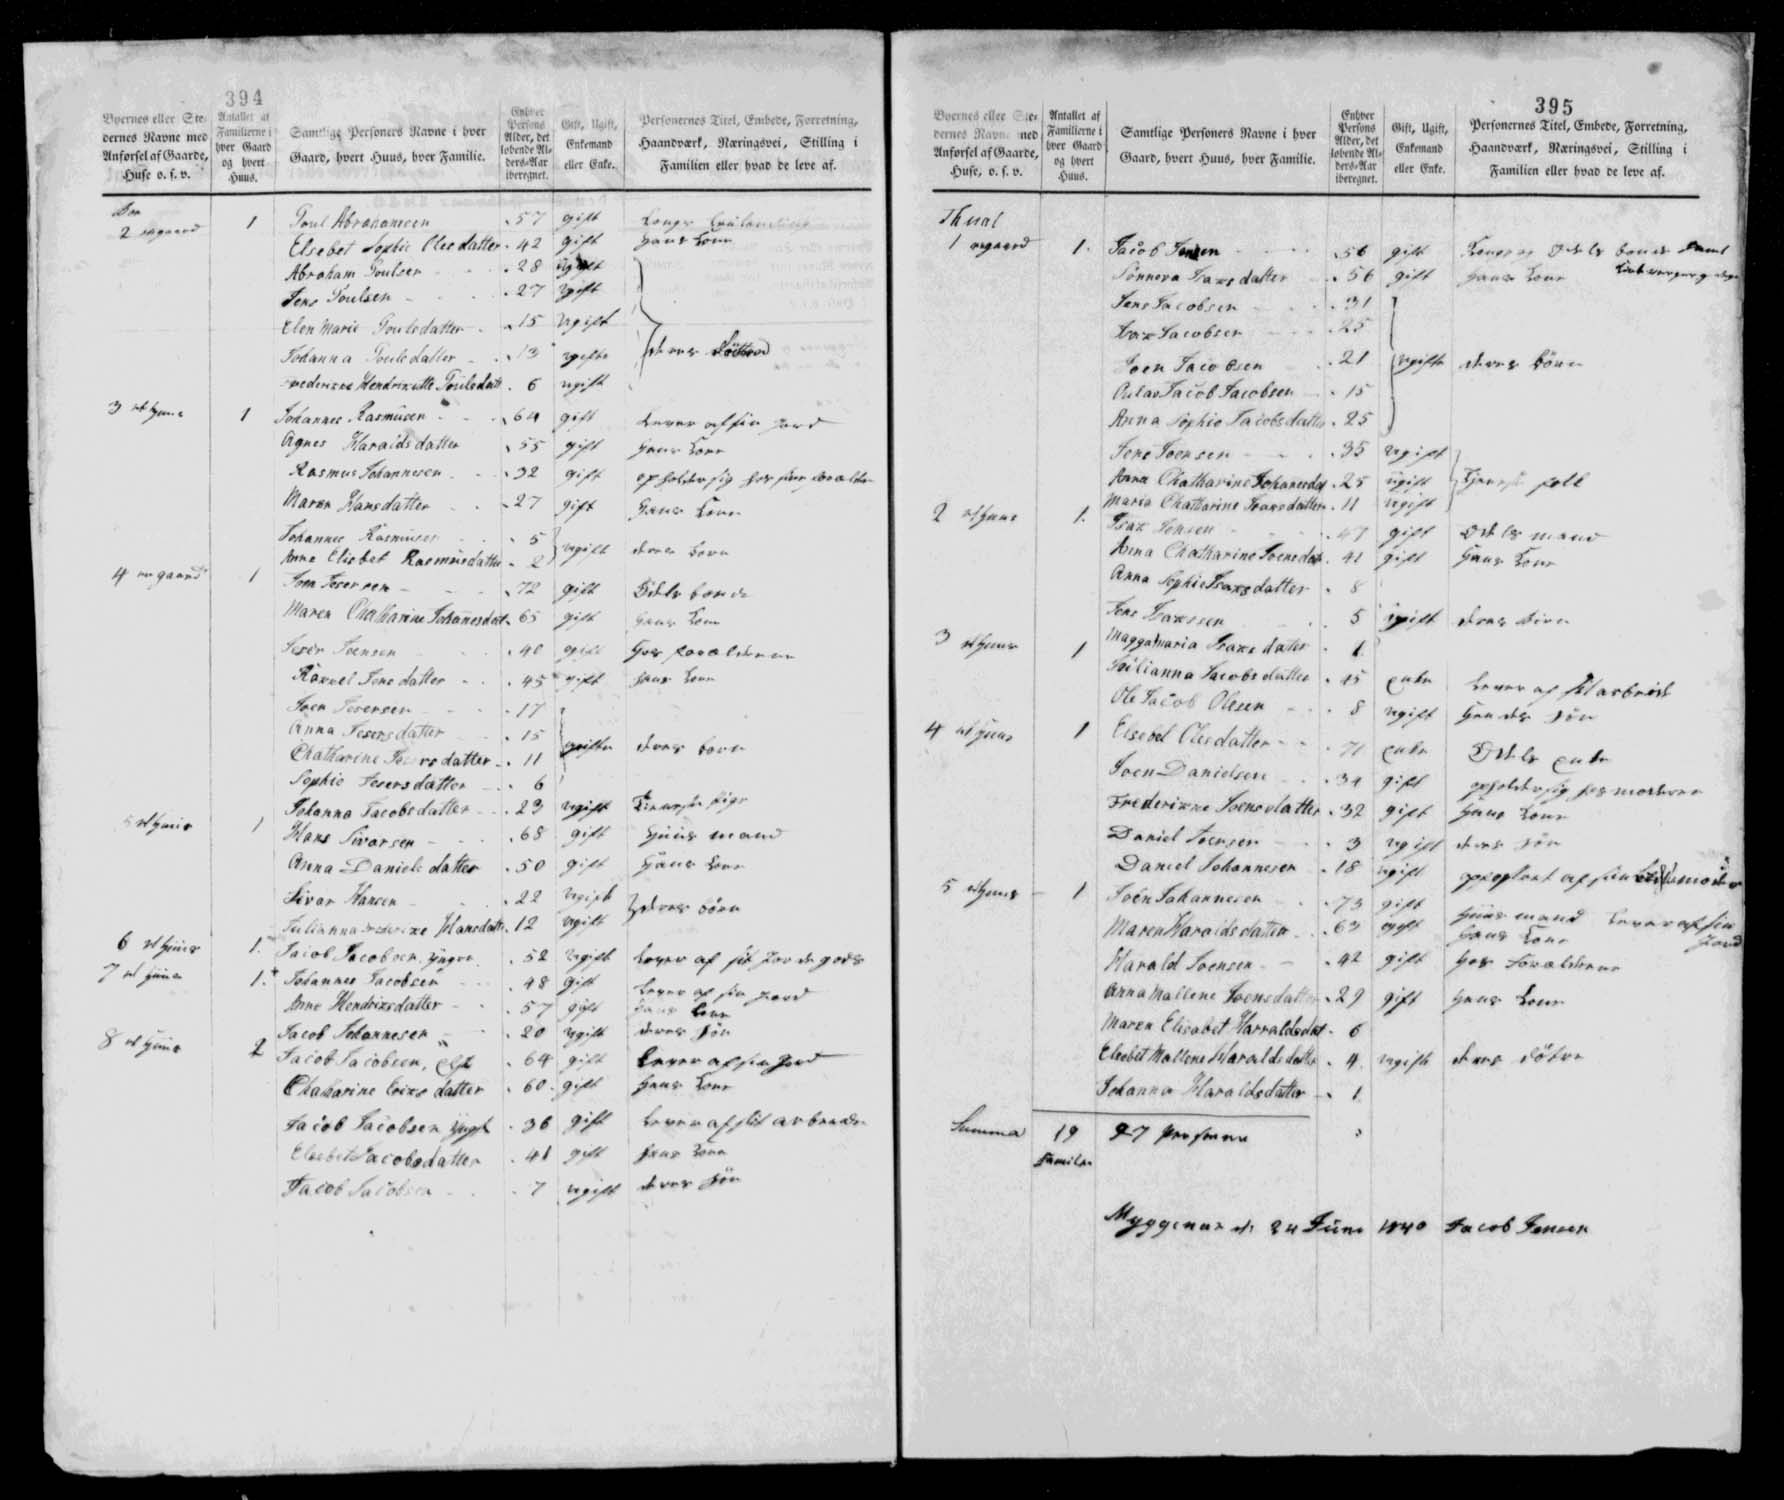 394
Byernes eller Ste-
dernes Navne med
Anførsel af Gaarde,
Huse o. s. v.
Antallet af
Familierne i
hver Gaard
og hvert
Huus.
Samtlige Personers Navne i hver
Gaard, hvert Huus, hver Familie.
Enhver
Persons
Alder, det
løbende Al-
ders-Aar
iberegnet.
Gift, Ugift,
Enkemand
eller Enke.
Personernes Titel, Embede, Forretning,
Haandværk, Næringsvei, Stilling i
Familien eller hvad de leve af.
2 1 Poul Abrahamsen 57 gift
Elsebet Sophie Olesdatter 42 gift hans kone
Abraham Poulsen 28 ugift
Jens Poulsen 27 ugift
Elen Marie Poulsdatter 15 ugift
Johanna Poulsdatter 13 ugifte deres
Hendrikette Poulsdatt 6 ugift
3 et huus 1 Johannes Rasmusen 64 gift lever af sin jord
Agnes Haraldsdatter 55 gift hans kone
Rasmus Johannesen 32 gift opholder sig hos sine forældre
Maren Hansdatter 27 gift hans kone
Johannes Rasmusen 5
Anne Elsebet Rasmusdatter 2 ugift deres børn
4 en gaard 1 Joen Jesersen 72 gift Odels bonde
Maren Chatharine Johanesdatt 65 gift hans kone
Jeser Joensen 40 gift hos forældrene
Rakuel Jensdatter 45 gift hans kone
Joen Jesersen 17
Anna Jesersdatter 15
Chatharine Jesersdatter 11 ugifte deres børn
Sophie Jesersdatter 6
Johanna Jacobsdatter 23 ugift tieneste pige
5 et huus 1 Hans Sivarsen 68 gift huus mand
Anna Danielsdatter 50 gift hans kone
Sivar Hansen 22 ugift
Julianna Hansdatter 12 ugift deres børn
6 et huus 1. Jacob Jacobsen yngre 52 ugift lever af sit jorde gods
7 et huus 1. Johannes Jacobsen 48 gift lever af sin jord
Anne Hendriksdatter 57 gift hans kone
Jacob Johannesen 20 ugift deres søn
8 et huus 2 Jacob Jacobsen, 64 gift lever af sin jord
Chatharine datter 60 gift hans kone
Jacob Jacobsen yngst 36 gift lever af sit arbeide
Elsebet Jacobsdatter 41 gift hans kone
Jacob Jacobsen 7 ugift deres søn
395
Byernes eller Ste-
dernes Navne med
Anførsel af Gaarde,
Huse, o. s. v.
Antallet af
Familierne i
hver Gaard
og hvert
Huus.
Samtlige Personers Navne i hver
Gaard, hvert Huus, hver Familie.
Enhver
Persons
Alder, det
løbende Al-
ders-Aar
iberegnet.
Gift, Ugift,
Enkemand
eller Enke.
Personernes Titel, Embede, Forretning,
Haandværk, Næringsvei, Stilling i
Familien eller hvad de leve af.
1 en gaard 1. Jacob Jensen 56 gift Odels bonde samt
Sönneva Isaxsdatter 56 gift hans kone
Jens Jacobsen 31
Isax Jacobsen 25
Joen Jacobsen 21 ugifte deres börn
Jacob Jacobsen 15
Anna Sophie Jacobsdatter 25
Jens Joensen 35 ugift
Anna Chatharine Johanesdat 25 ugift tieneste folk
Maria Chatharine Isaxsdatter 11 ugift
2 et huus 1. Isax Jensen 47 gift Odels mand
Anna Chatharine Joensdat 41 gift hans kone
Anna Sophie Isaxsdatter 8
Jens Isaxsen 5 ugift deres börn
Magga Maria Isaxsdatter 1
3 et huus 1 Julianna Jacobsdatter 45 enke lever af sit arbeide
Ole Jacob Olesen 8 ugift hendes sön
4 et huus 1 Elsebet Olesdatter 71 enke Odels enke
Joen Danielsen 34 gift opholder sig hos moderen
Frederikke Joensdatter 32 gift hans kone
Daniel Joensen 3 ugift deres sön
Daniel Johannesen 18 ugift opfostret af sin
5 et huus 1 Joen Johannesen 73 gift huus mand lever af sin jord
Maren Haraldsdatter 63 gift hans kone
Harald Joensen 42 gift hos forældrene
Anna Mallene Joensdatter 29 gift hans kone
Maren Elisabet Harraldsdat 6
Elsebet Mallene Haraldsdatter 4 ugift deres döttre
Johanna Haraldsdatter 1
Summa 19 97 Personer
Familier
Myggenæs d. 24 Juni 1840 Jacob Jensen